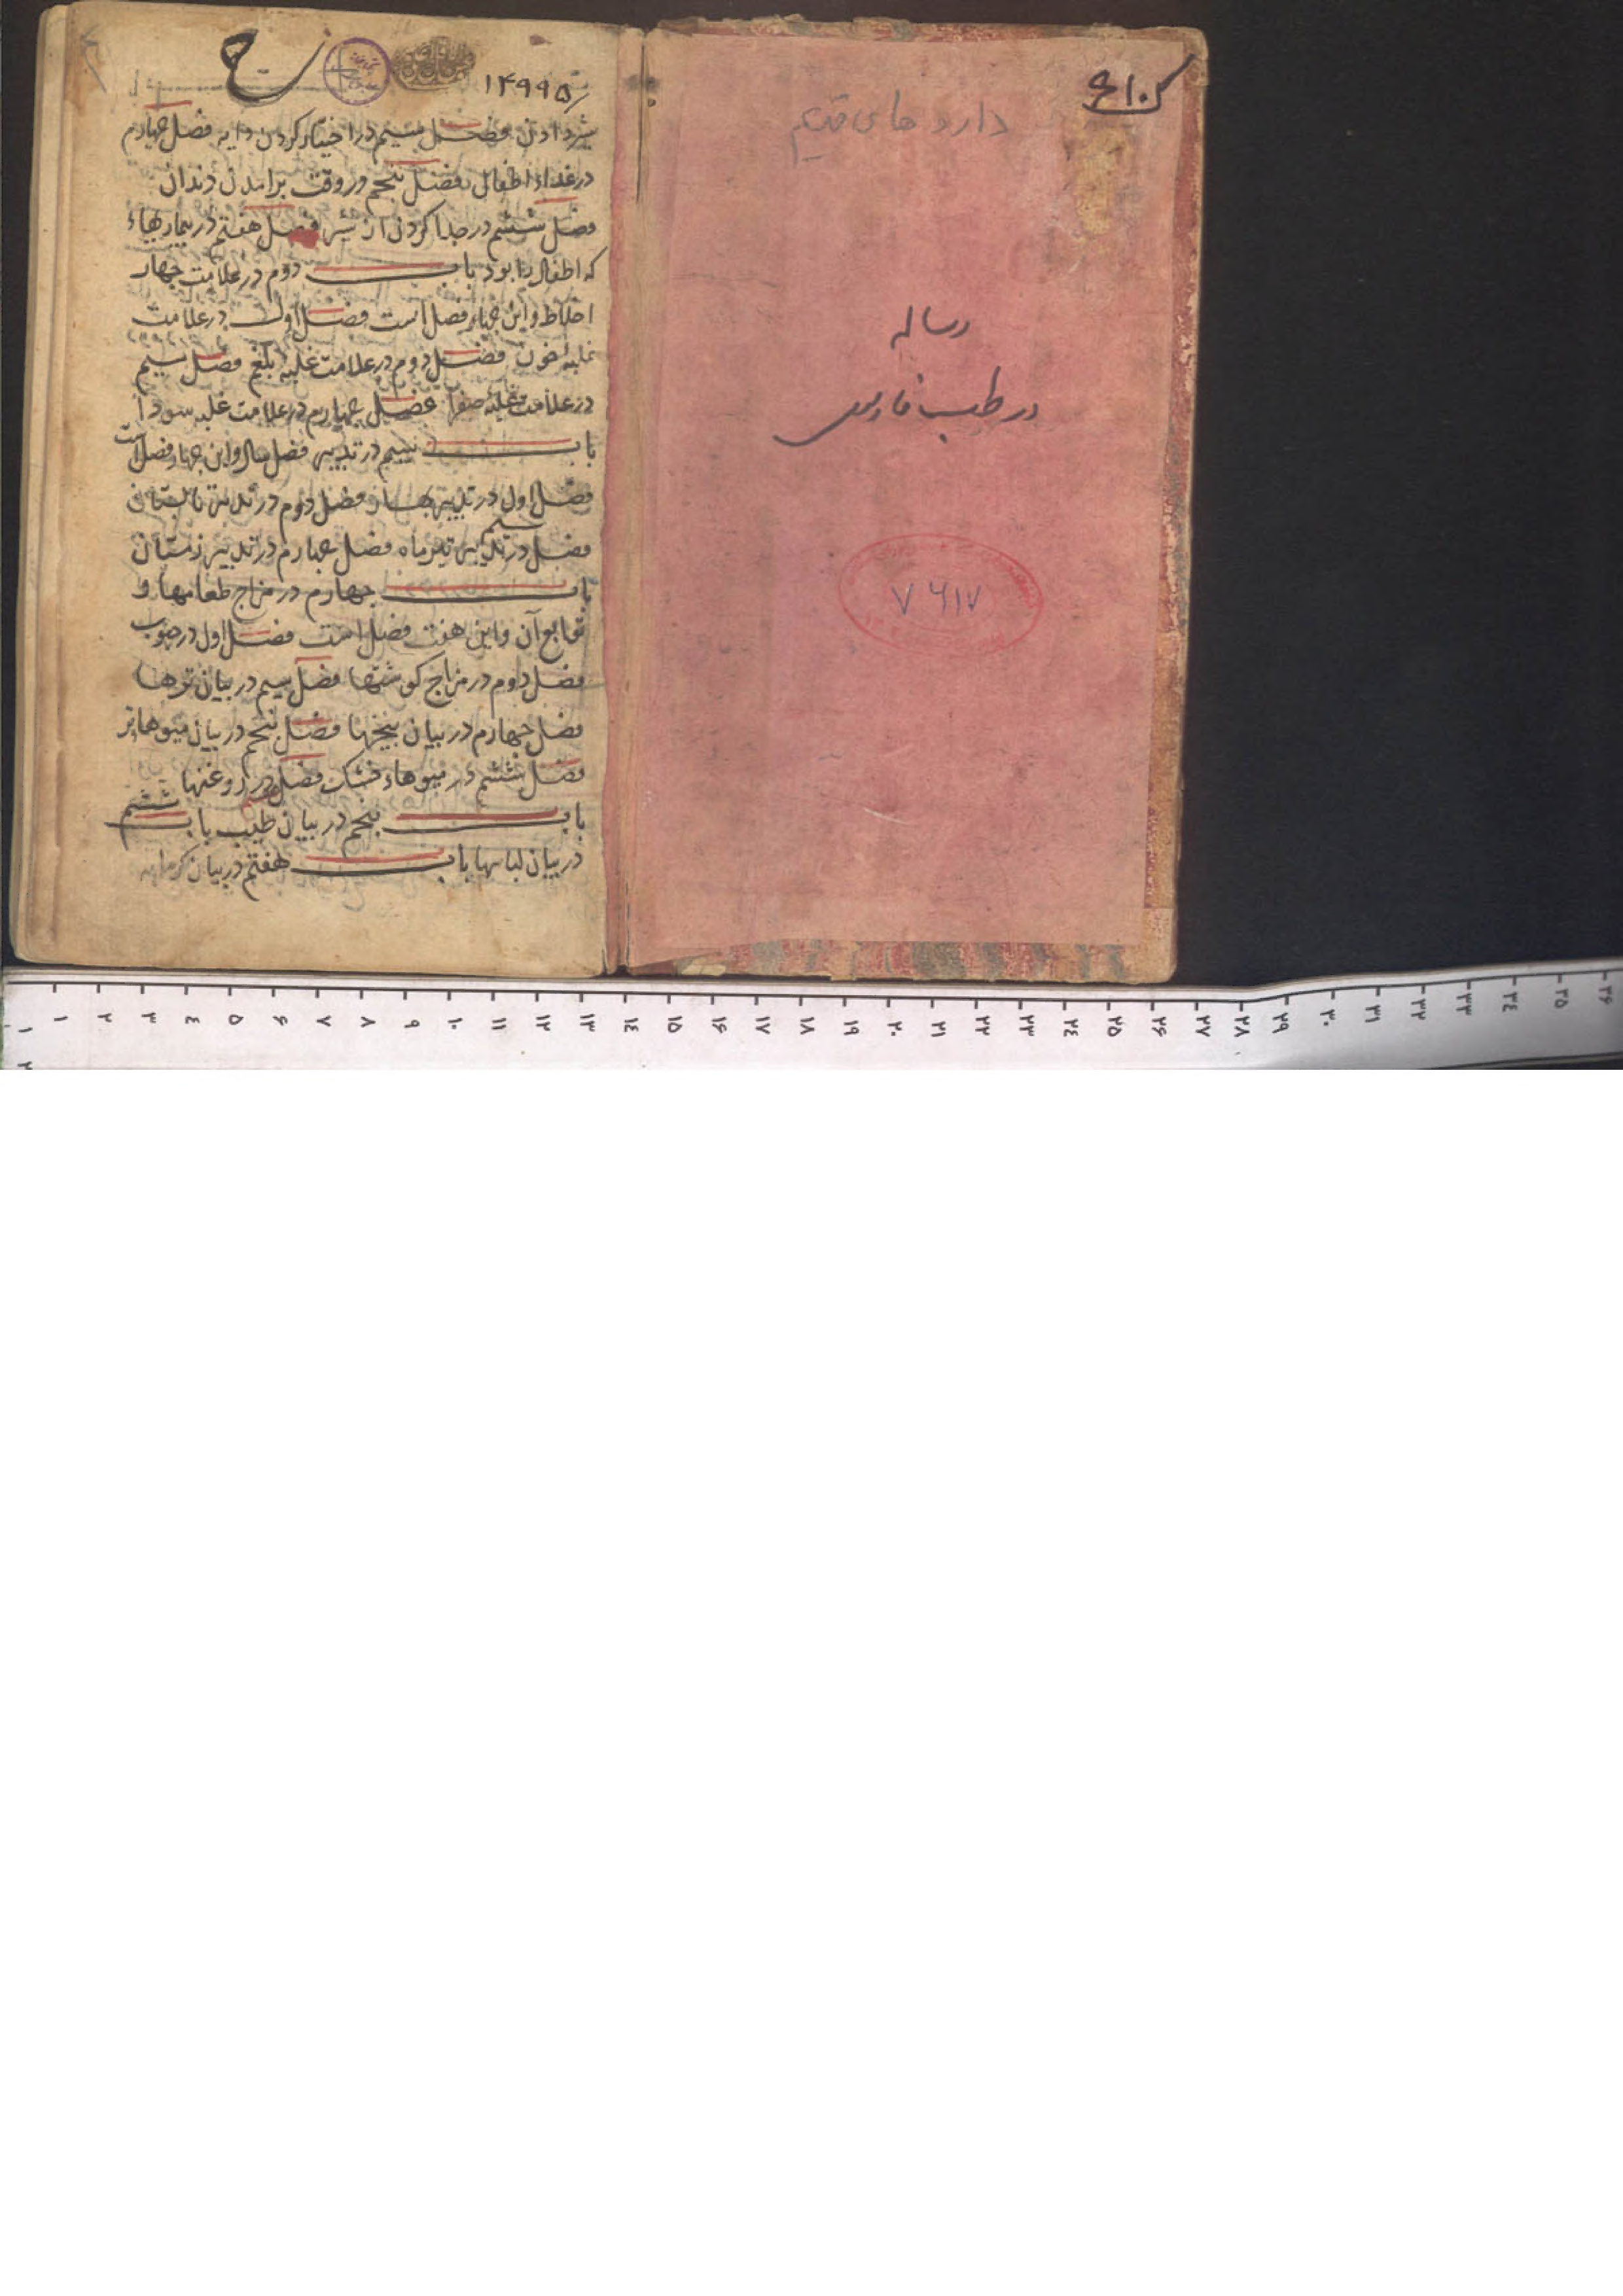 داروهای قدیم
رساله
در طب فارسی
۷۶۱۷
۱۴۹۹۵
شیر دادن فصل سیم در اختیار کردن دایه فصل چهارم
در غداء اطفال فصل پنجم در وقت برامدن دندان
فصل ششم در جدا کردن از شیر فصل هفتم در بیماریهاء
که اطفال را بود باب دوم در علامت چهار
اخلاط و این چهار فصل است فصل اول در علامت
غلبه خون فصل دوم در علامت غلبه بلغم فصل سیم
در علامت غلبه صفرا فصل چهارم در علامت غلبه سودا
باب سیم در تدبیر فصل سال و این چهار فصل است
فصل اول در تدبیر بهار فصل دوم در تدبیر تابستان
فصل سیم در تدبیر تیرماه فصل چهارم در تدبیر زمستان
باب چهارم در مزاج طعامها و
توابع آن و این هفت فصل است فصل اول در حبوب
فصل دوم در مزاج کوشتها فصل سیم در بیان ترها
فصل چهارم در بیان بیخها فصل پنجم در بیان میوهاتر
فصل ششم در میوهاء خشک فصل در روغنها
باب پنجم در بیان طیب باب ششم
در بیان لباسها باب هفتم در بیان کرمابه
۱ ۲ ۳ ۴ ۵ ۶ ۷ ۸ ۹ ۱۰ ۱۱ ۱۲ ۱۳ ۱۴ ۱۵ ۱۶ ۱۷ ۱۸ ۱۹ ۲۰ ۲۱ ۲۲ ۲۳ ۲۴ ۲۵ ۲۶ ۲۷ ۲۸ ۲۹ ۳۰ ۳۱ ۳۲ ۳۳ ۳۴ ۳۵ ۳۶